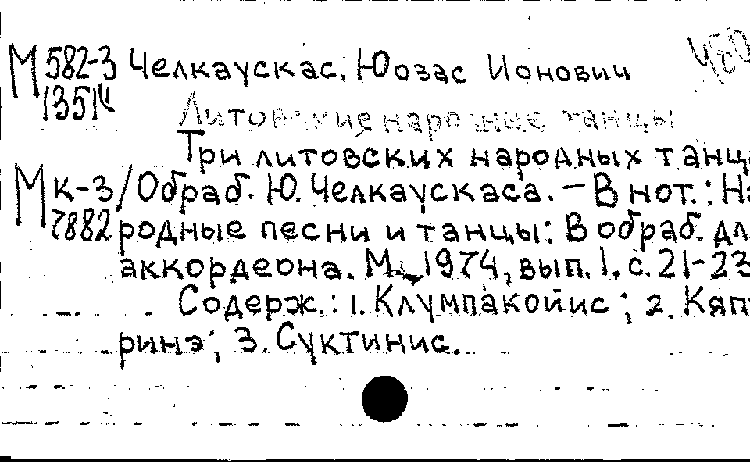 М 582-3 Челкаускас, Юозас Ионович
13514
Литовские народные танцы
Три литовских народных танц
М к-3 /Обраб. Ю. Челкаускаса. — В нот.: На
7882 родные песни и танцы: В обраб. дл
аккордеона. М., 1974, вып. 1. с. 21-23
Содерж.: 1. Клумпакойис; 2. Кяп
ринэ; 3. Суктинис.